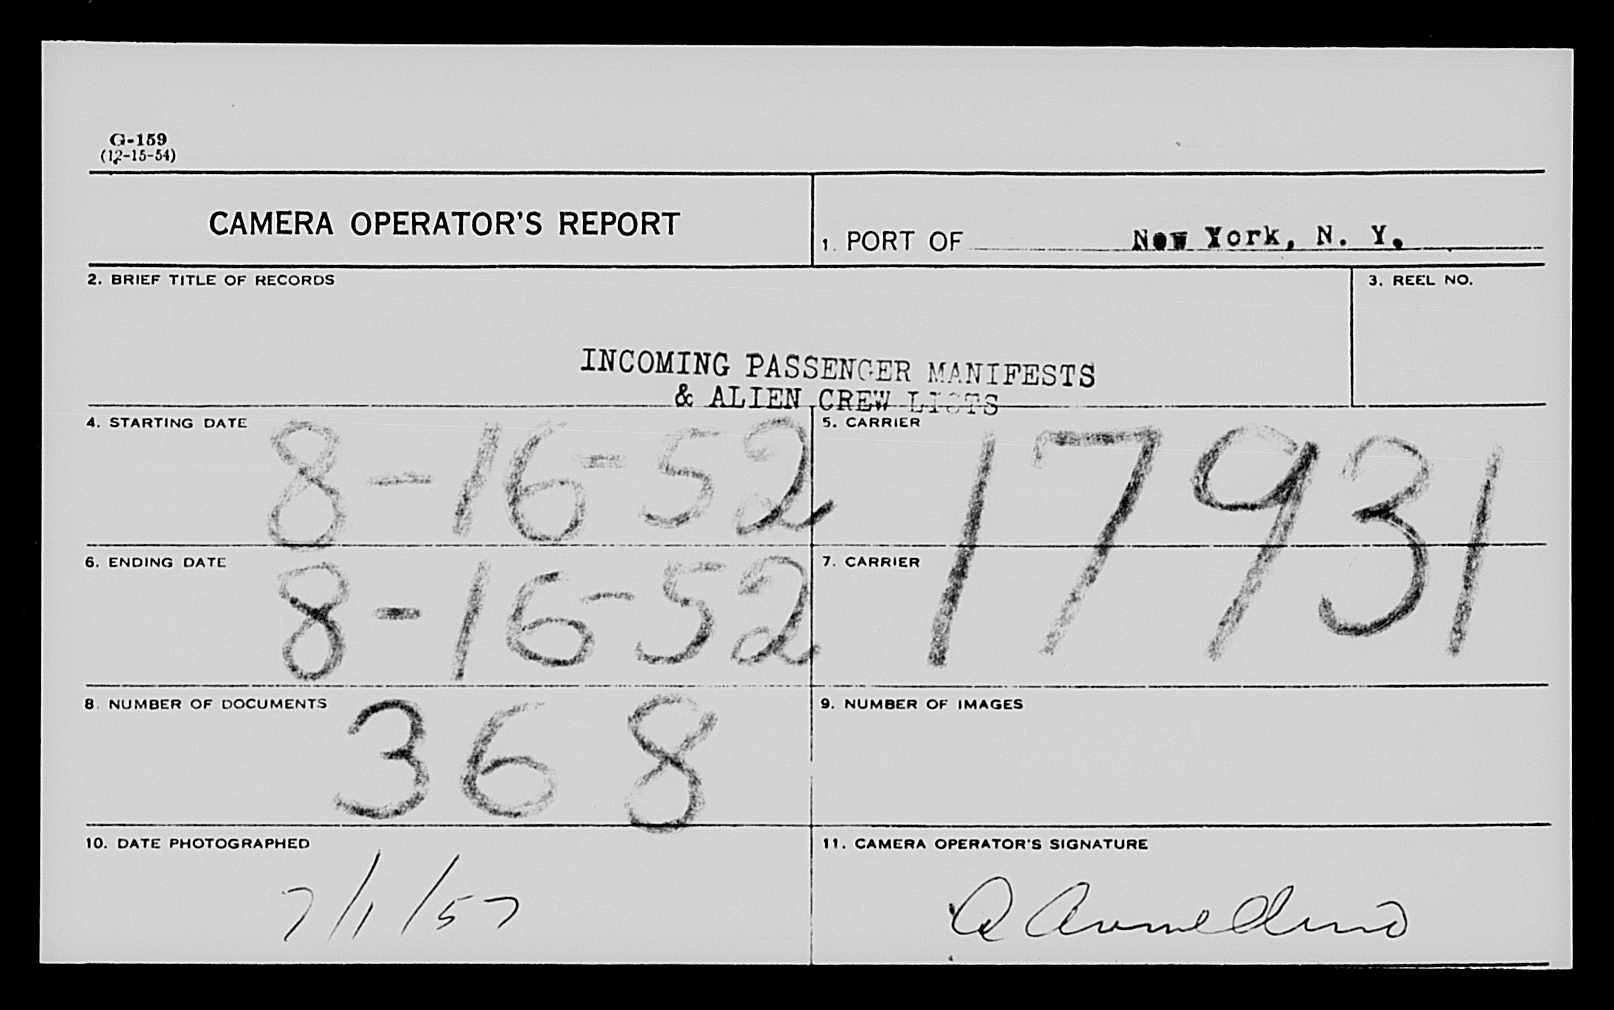 G-159
(12-15-54)
CAMERA OPERATOR'S REPORT
1. PORT OF New York, N. Y.
2. BRIEF TITLE OF RECORDS
3. REEL NO.
INCOMING PASSENGER MANIFESTS
& ALIEN CREW LISTS
4. STARTING DATE 8-16-52
5. CARRIER
17931
6. ENDING DATE 8-16-52
7. CARRIER
8. NUMBER OF DOCUMENTS 368
9. NUMBER OF IMAGES
10. DATE PHOTOGRAPHED
7/1/57
11. CAMERA OPERATOR'S SIGNATURE